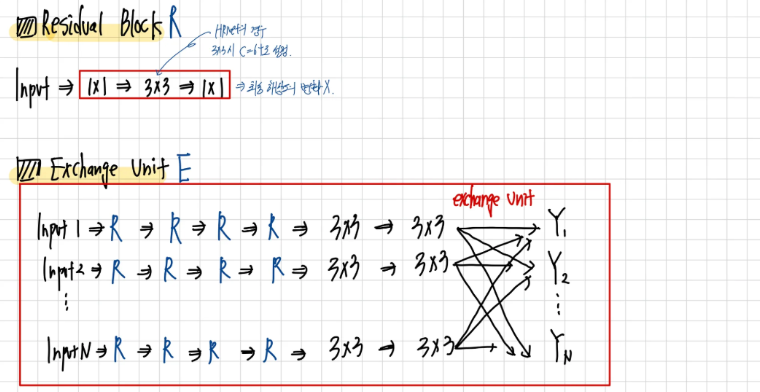 Residual Block R
HRNet의 경우
3x3시 C=64로 설정.
Input ⇒ 1x1 ⇒ 3x3 ⇒ 1x1 ⇒ 최종 해상도의 변화 X.
Exchange Unit E
exchange unit
Input 1 ⇒ R ⇒ R ⇒ R ⇒ R ⇒ 3x3 → 3x3 Y1
Input 2 ⇒ R ⇒ R ⇒ R ⇒ R ⇒ 3x3 → 3x3 Y2
⋮ ⋮
Input N ⇒ R ⇒ R ⇒ R ⇒ R ⇒ 3x3 → 3x3 YN